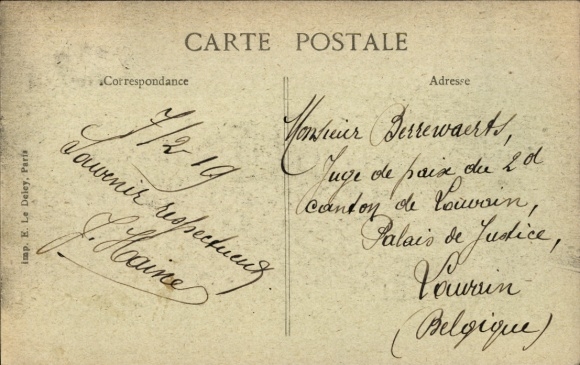 CARTE POSTALE
Correspondance
Adresse
7/2 19
Souvenir respectueux
J. Haine
Monsieur Berrewaerts,
Juge de paix du 2d
canton de Louvain,
Palais de Justice,
Louvain
(Belgique)
imp. E. Le Deley, Paris